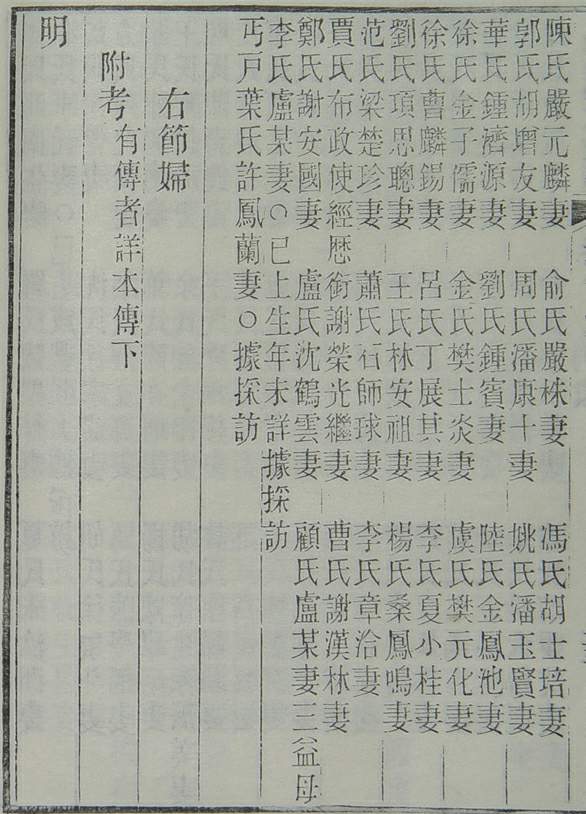 陳氏嚴元麟妻 俞氏嚴株妻 馮氏胡士培妻
郭氏胡增友妻 周氏潘康十妻 姚氏潘玉賢妻
華氏鍾濟源妻 劉氏鍾賓妻 陸氏金鳳池妻
徐氏金子儒妻 金氏樊士炎妻 虞氏樊元化妻
徐氏曹麟錫妻 呂氏丁展其妻 李氏夏小桂妻
劉氏項思聰妻 王氏林安祖妻 楊氏桑鳳鳴妻
范氏梁楚珍妻 蕭氏石師球妻 李氏章治妻
賈氏布政使經歷銜謝榮光繼妻 曹氏謝漢林妻
鄭氏謝安國妻 盧氏沈鶴雲妻 顧氏盧某妻三益母
李氏盧某妻〇已上生年未詳據採訪
丐戸葉氏許鳳蘭妻〇據採訪
右節婦
附考有傳者詳本傳下
明